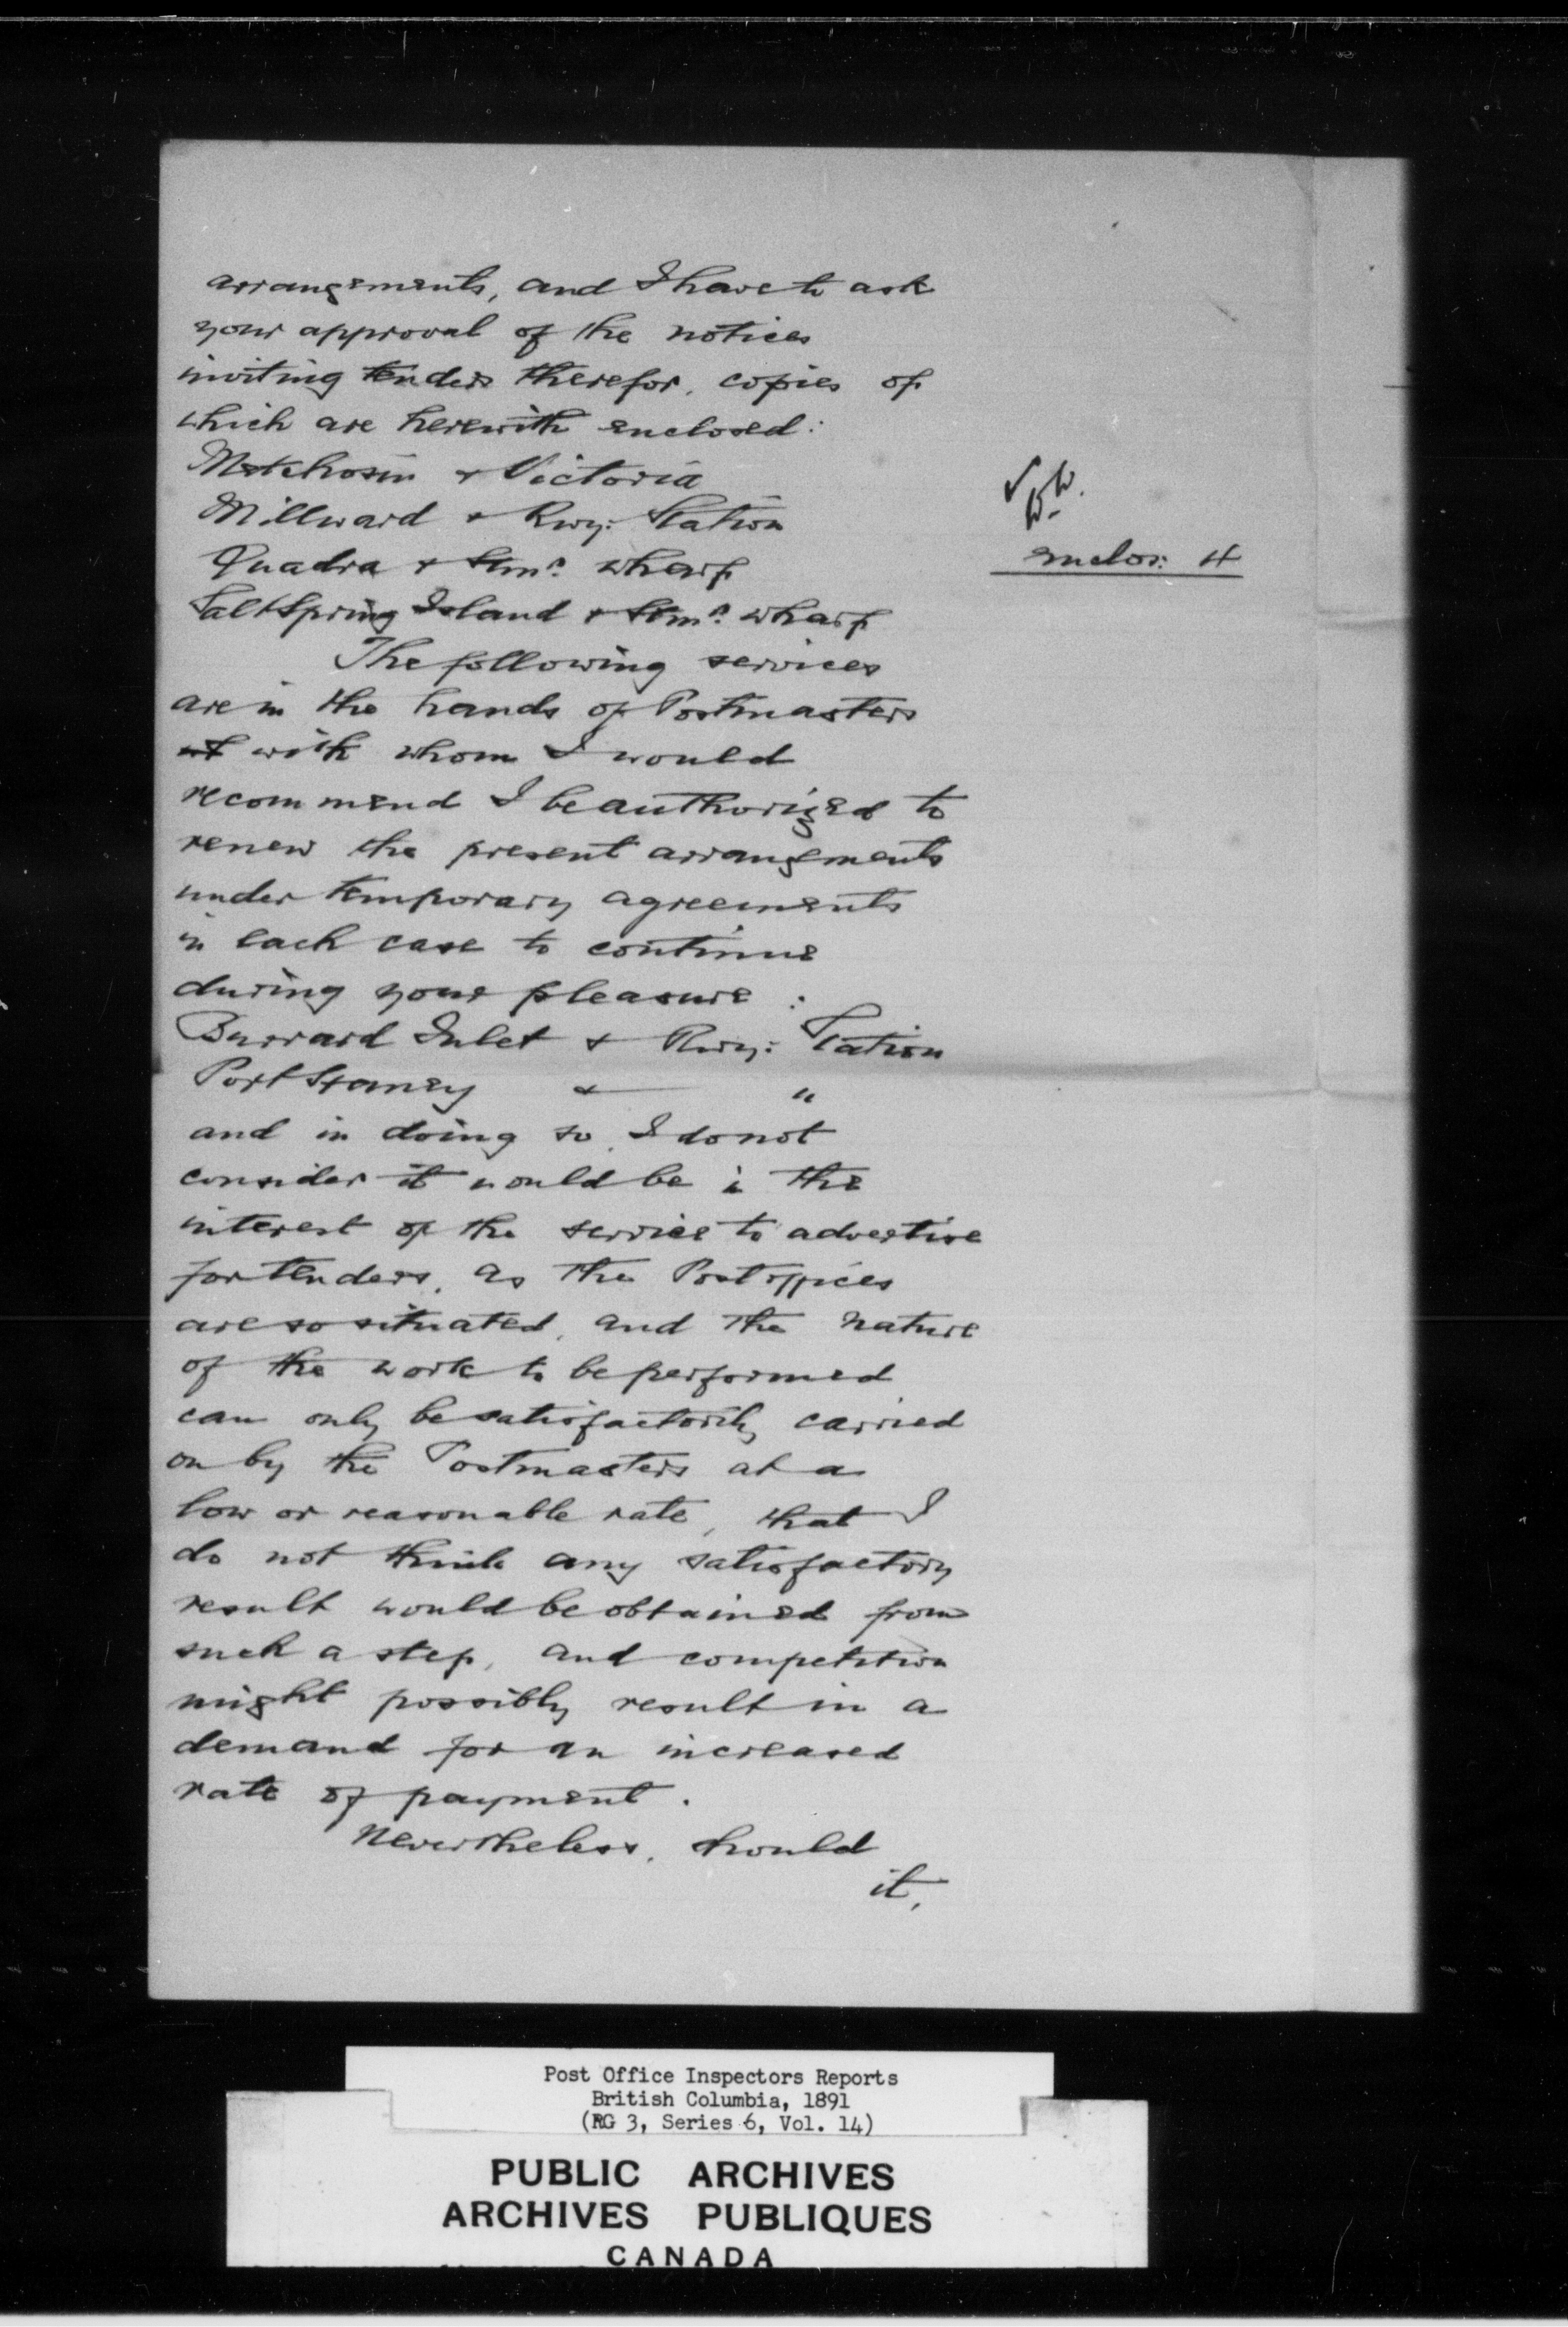 arrangements, and I have to ask
your approval of the notices
inviting tenders therefor, copies of
which are herewith enclosed:
Metchosin & Victoria
Millward & Rwy: Station
enclos: 4
Quadra & Stmr. wharf
Salt Spring Island & Stmr. wharf
The following services
are in the hands of Postmasters
with whom I would
recommend I be authorized to
renew the present arrangements
under temporary agreements
in each case to continue
during your pleasure:
Burrard Inlet & Rwy: Station
Port Haney & "
and in doing so, I do not
consider it would be in the
interest of the service to advertise
for tenders, as the Post offices
are so situated, and the nature
of the work to be performed
can only be satisfactorily carried
on by the Postmasters at a
low or reasonable rate, that I
do not think any satisfactory
result would be obtained from
such a step, and competition
might possibly result in a
demand for an increased
rate of payment.
Nevertheless, should
it,
Post Office Inspectors Reports
British Columbia, 1891
(RG 3, Series 6, Vol. 14)
PUBLIC ARCHIVES
ARCHIVES PUBLIQUES
CANADA